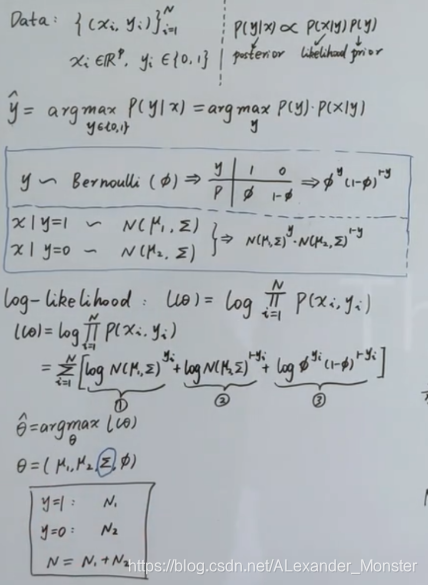 Data: {(xᵢ, yᵢ)}ᵢ₌₁ᴺ
xᵢ∈ℝᵖ, yᵢ∈{0,1}
P(y|x) ∝ P(x|y)P(y)
posterior likelihood prior
ŷ = argmax_{y∈{0,1}} P(y|x) = argmax_y P(y)·P(x|y)
y ~ Bernoulli(φ) ⇒ y | 1 0 ⇒ φ^y(1-φ)^{1-y}
P | φ 1-φ
x|y=1 ~ N(μ₁,Σ)
x|y=0 ~ N(μ₂,Σ)
⇒ N(μ₁,Σ)^y·N(μ₂,Σ)^{1-y}
log-likelihood: l(θ) = log ∏ᵢ₌₁ᴺ P(xᵢ,yᵢ)
l(θ) = log ∏ᵢ₌₁ᴺ P(xᵢ,yᵢ)
= Σᵢ₌₁ᴺ [log N(μ₁,Σ)^{yᵢ} + log N(μ₂,Σ)^{1-yᵢ} + log φ^{yᵢ}(1-φ)^{1-yᵢ}]
① ② ③
θ̂ = argmax_θ l(θ)
θ = (μ₁,μ₂,Σ,φ)
y=1: N₁
y=0: N₂
N = N₁+N₂
https://blog.csdn.net/ALexander_Monster